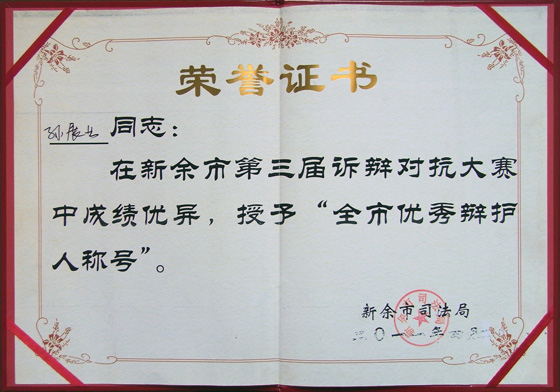 荣誉证书
孙
同志：
在新余市第三届诉辩对抗大赛
中成绩优异，授予“全市优秀辩护
人称号”。
新余市司法局
二〇一一年